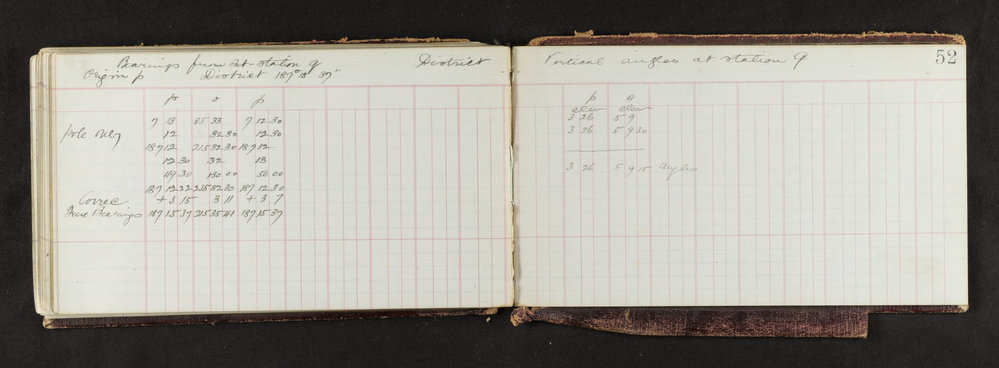 Bearings from at station q District
Origin p District 187° 15' 37"
p o p
7 13 35 33 7 12 30
pole only 12 32 30 12 30
187 12 215 32 30 187 12
12 30 32 13
49 30 130 00 50 00
187 12 22 215 32 30 187 12 30
Correc + 3 15 3 11 + 3 7
True Bearings 187 15 37 215 35 41 187 15 37
Vertical angles at station q 52
p o
elev elev
3 26 5 9
3 26 5 9 30
3 26 5 9 15 angles